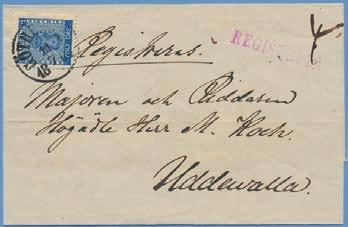 Registreras.
Majoren och Riddaren
Högädle Herr M. Koch.
Uddewalla.